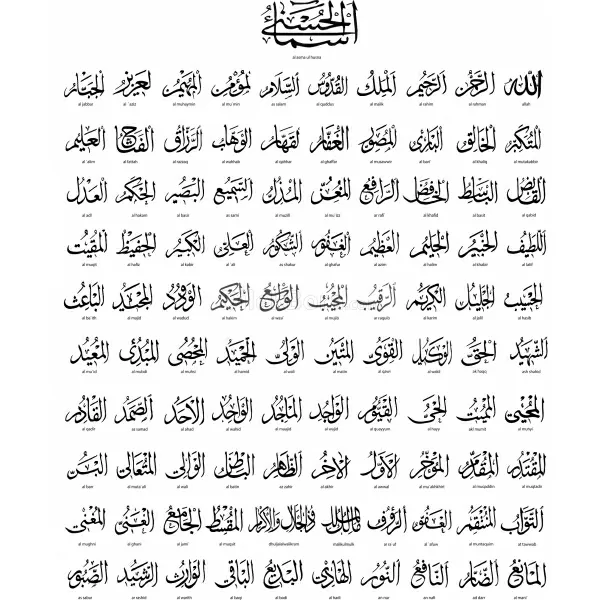 أسماء الحسنى
al asma ul husna
الله الرحمن الرحيم الملك القدوس السلام المؤمن المهيمن العزيز الجبار
allah al rahman al rahim al malik al quddus as salam al mu'min al muhaymin al 'aziz al jabbar
المتكبر الخالق البارئ المصور الغفار القهار الوهاب الرزاق الفتاح العليم
al mutakabbir al khaliq al bari' al musawwir al ghaffar al qahhar al wahhab al razzaq al fattah al 'alim
القابض الباسط الخافض الرافع المعز المذل السميع البصير الحكم العدل
al qabid al basit al khafid ar rafi' al mu'izz al muzill as sami al basir al hakam al adl
اللطيف الخبير الحليم العظيم الغفور الشكور العلي الكبير الحفيظ المقيت
al latif al khabir al halim al azim al ghafur as shakur al 'ali al kabir al hafiz al muqit
الحسيب الجليل الكريم الرقيب المجيب الواسع الحكيم الودود المجيد الباعث
al hasib al jalil al karim al raquib al mujib al wasi' al hakim al wadud al majid al ba'ith
الشهيد الحق الوكيل القوي المتين الولي الحميد المحصي المبدئ المعيد
ash shahid al haqq al wakil al qawi al matin al wali al hamid al muhsi al mubdi al mu'id
المحيي المميت الحي القيوم الواجد الماجد الواحد الأحد الصمد القادر
al muhyi al mumit al hayy al quayyum al wajid al maajid al wahid al ahad as samad al qadir
المقتدر المقدم المؤخر الأول الآخر الظاهر الباطن الوالي المتعالي البر
al muqtadir al muqaddim al mu'akhkhir al awwal al akhir az zahir al batin al wali al muta'ali al barr
التواب المنتقم العفو الرؤوف مالك الملك ذو الجلال والإكرام المقسط الجامع الغني المغني
at tawwab al muntaqim al 'afuw ar ra'uf malikulmulk dhuljalalwalikram al muqsit al jami' al ghani al mughni
المانع الضار النافع النور الهادي البديع الباقي الوارث الرشيد الصبور
al mani' ad darr an nafi' an nur al hadi al badi al baqi al warith ar rashid as sabur